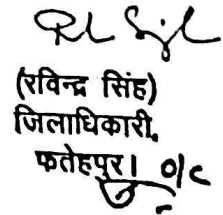 (रविन्द्र सिंह)
जिलाधिकारी,
फतेहपुर। o/c